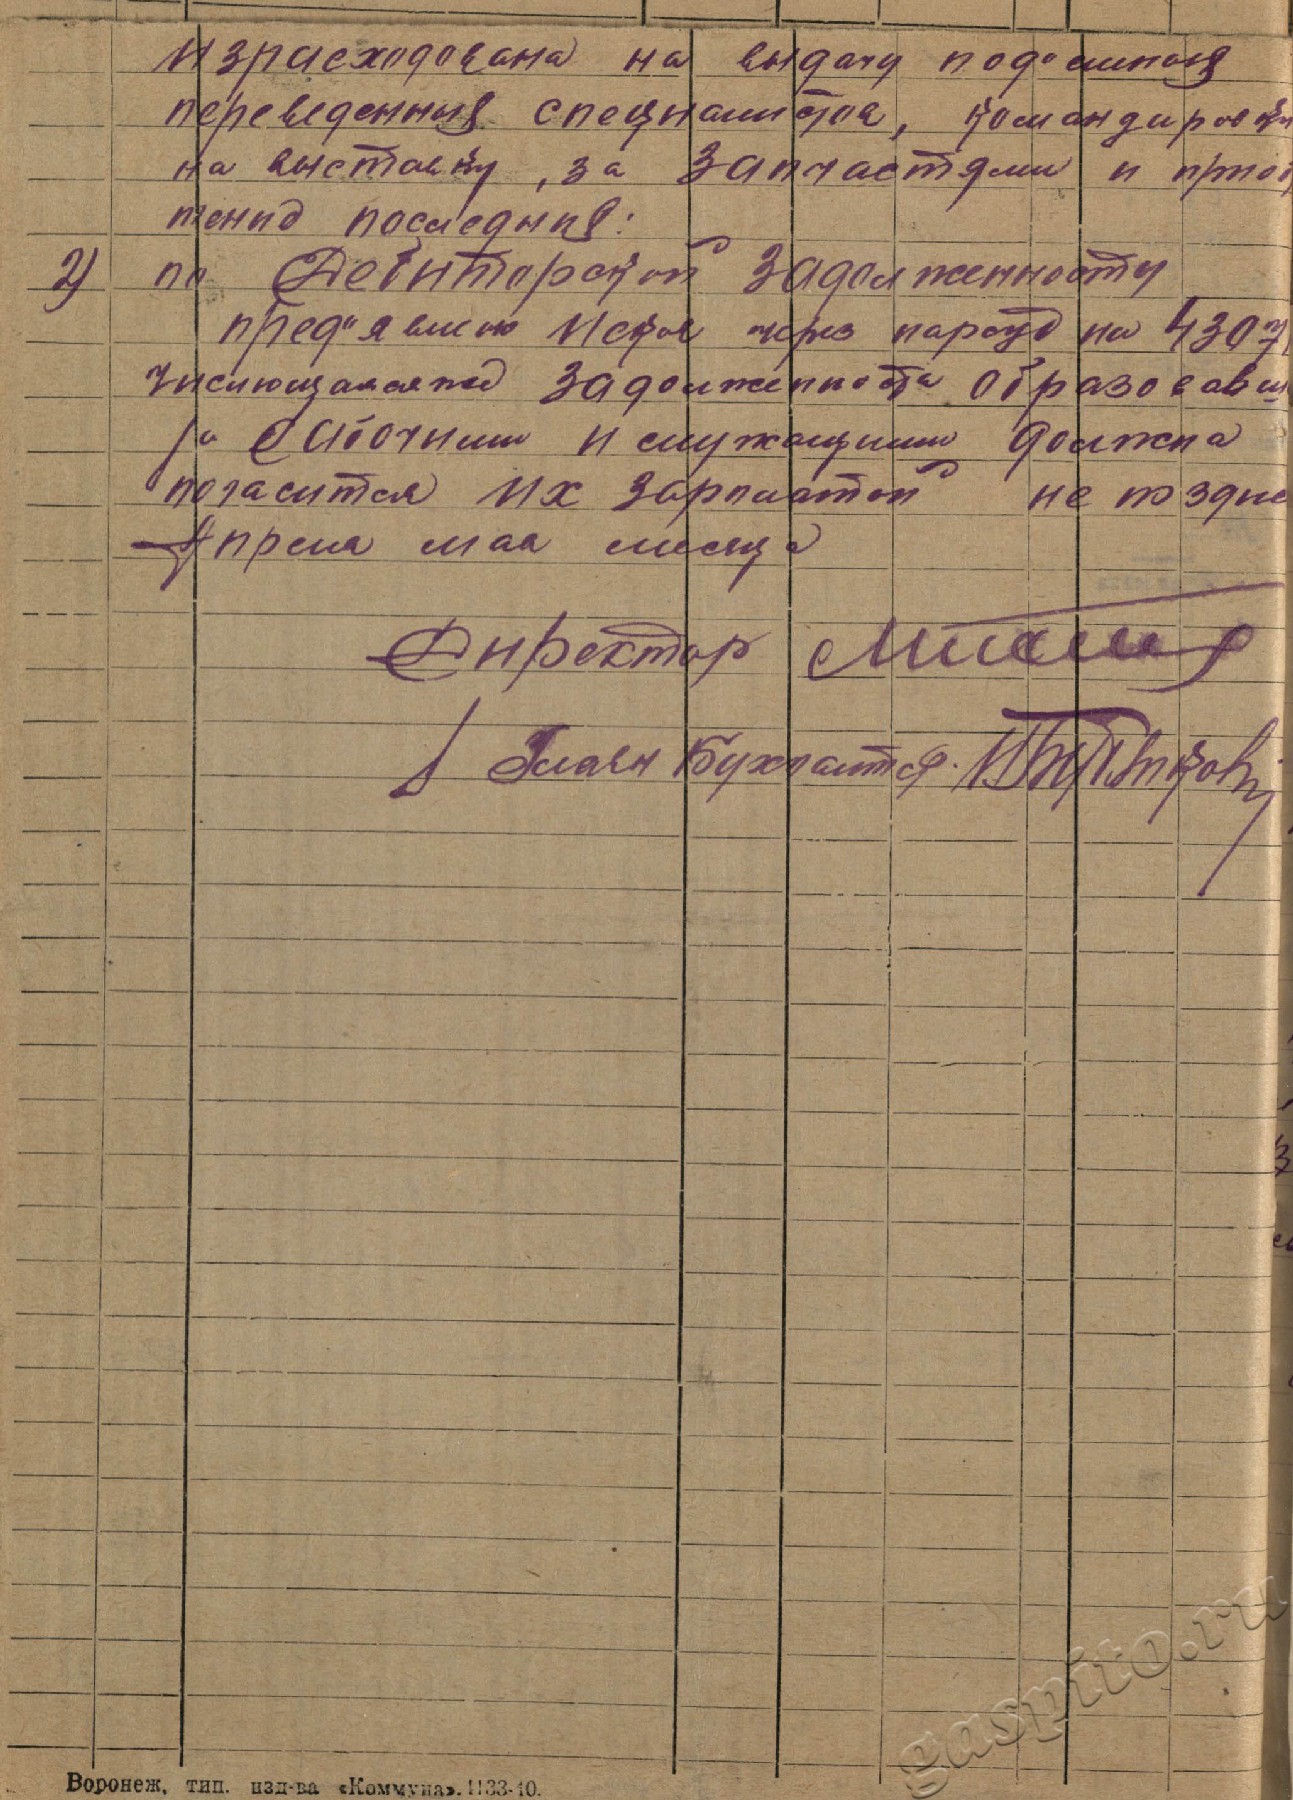 израсходована на выдачу подъемных
переведенных специалистов, командировки
на выставку, за запчастями и приоб
тения последних:
2) по Дебиторской задолженности
пред'явлено исков через нарсуд на 430
числющаяся задолженность образовавш
за рабочими и служащими должна
погасится их зарплатой не поздне
Апреля мая месяца
Директор
Главн Бухгалтер.
Воронеж, тип. изд-ва «Коммуна». 1133-40.
gaspito.ru